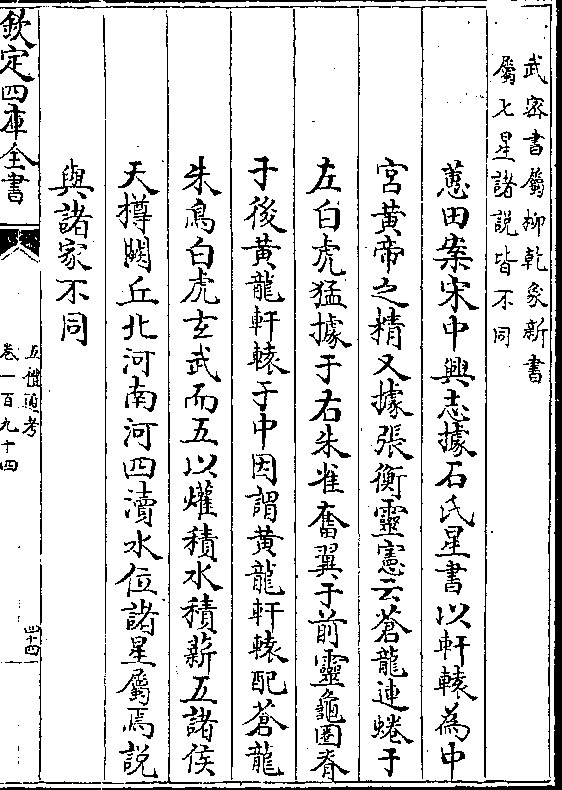 武宻書屬柳乾象新書
屬七星諸說皆不同
蕙田案宋中興志據石氏星書以軒轅為中
宮黃帝之精又據張衡靈憲云蒼龍連蜷于
左白虎猛據于右朱雀奮翼于前靈龜圈脊
于後黃龍軒轅于中因謂黃龍軒轅配蒼龍
朱鳥白虎玄武而五以爟積水積薪五諸侯
天樽闕丘北河南河四瀆水位諸星屬焉說
與諸家不同
欽定四庫全書
五禮通考
卷一百九十四
四十四